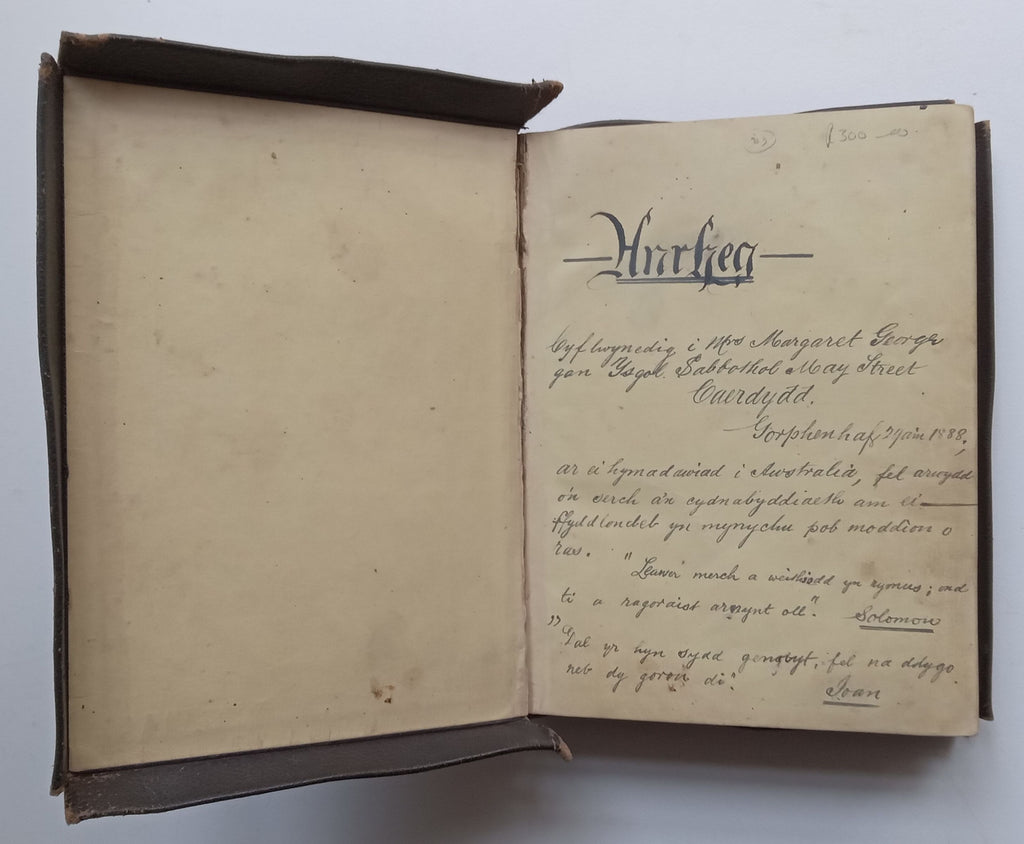 £300
— Anrheg —
Cyflwynedig i Mrs Margaret George
gan Ysgol Sabbothol May Street
Caerdydd.
Gorphenhaf 29ain 1888,
ar ei hymadawiad i Awstralia, fel arwydd
o'n serch a'n cydnabyddiaeth am ei —
ffyddlondeb yn mynychu pob moddion o
ras. "Llawer merch a weithiodd yn rymus; ond
ti a ragoraist arnynt oll". Solomon
"Dal yr hyn sydd genyt, fel na ddygo
neb dy goron di". Ioan